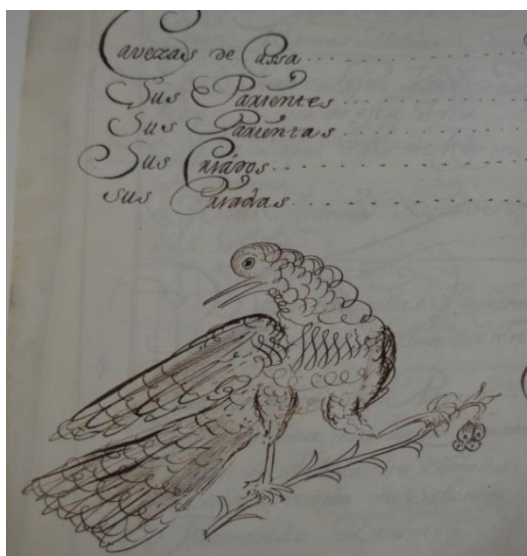 Cavezas de Cassa
Sus Parientes
Sus Parientas
Sus Criados
sus Criadas